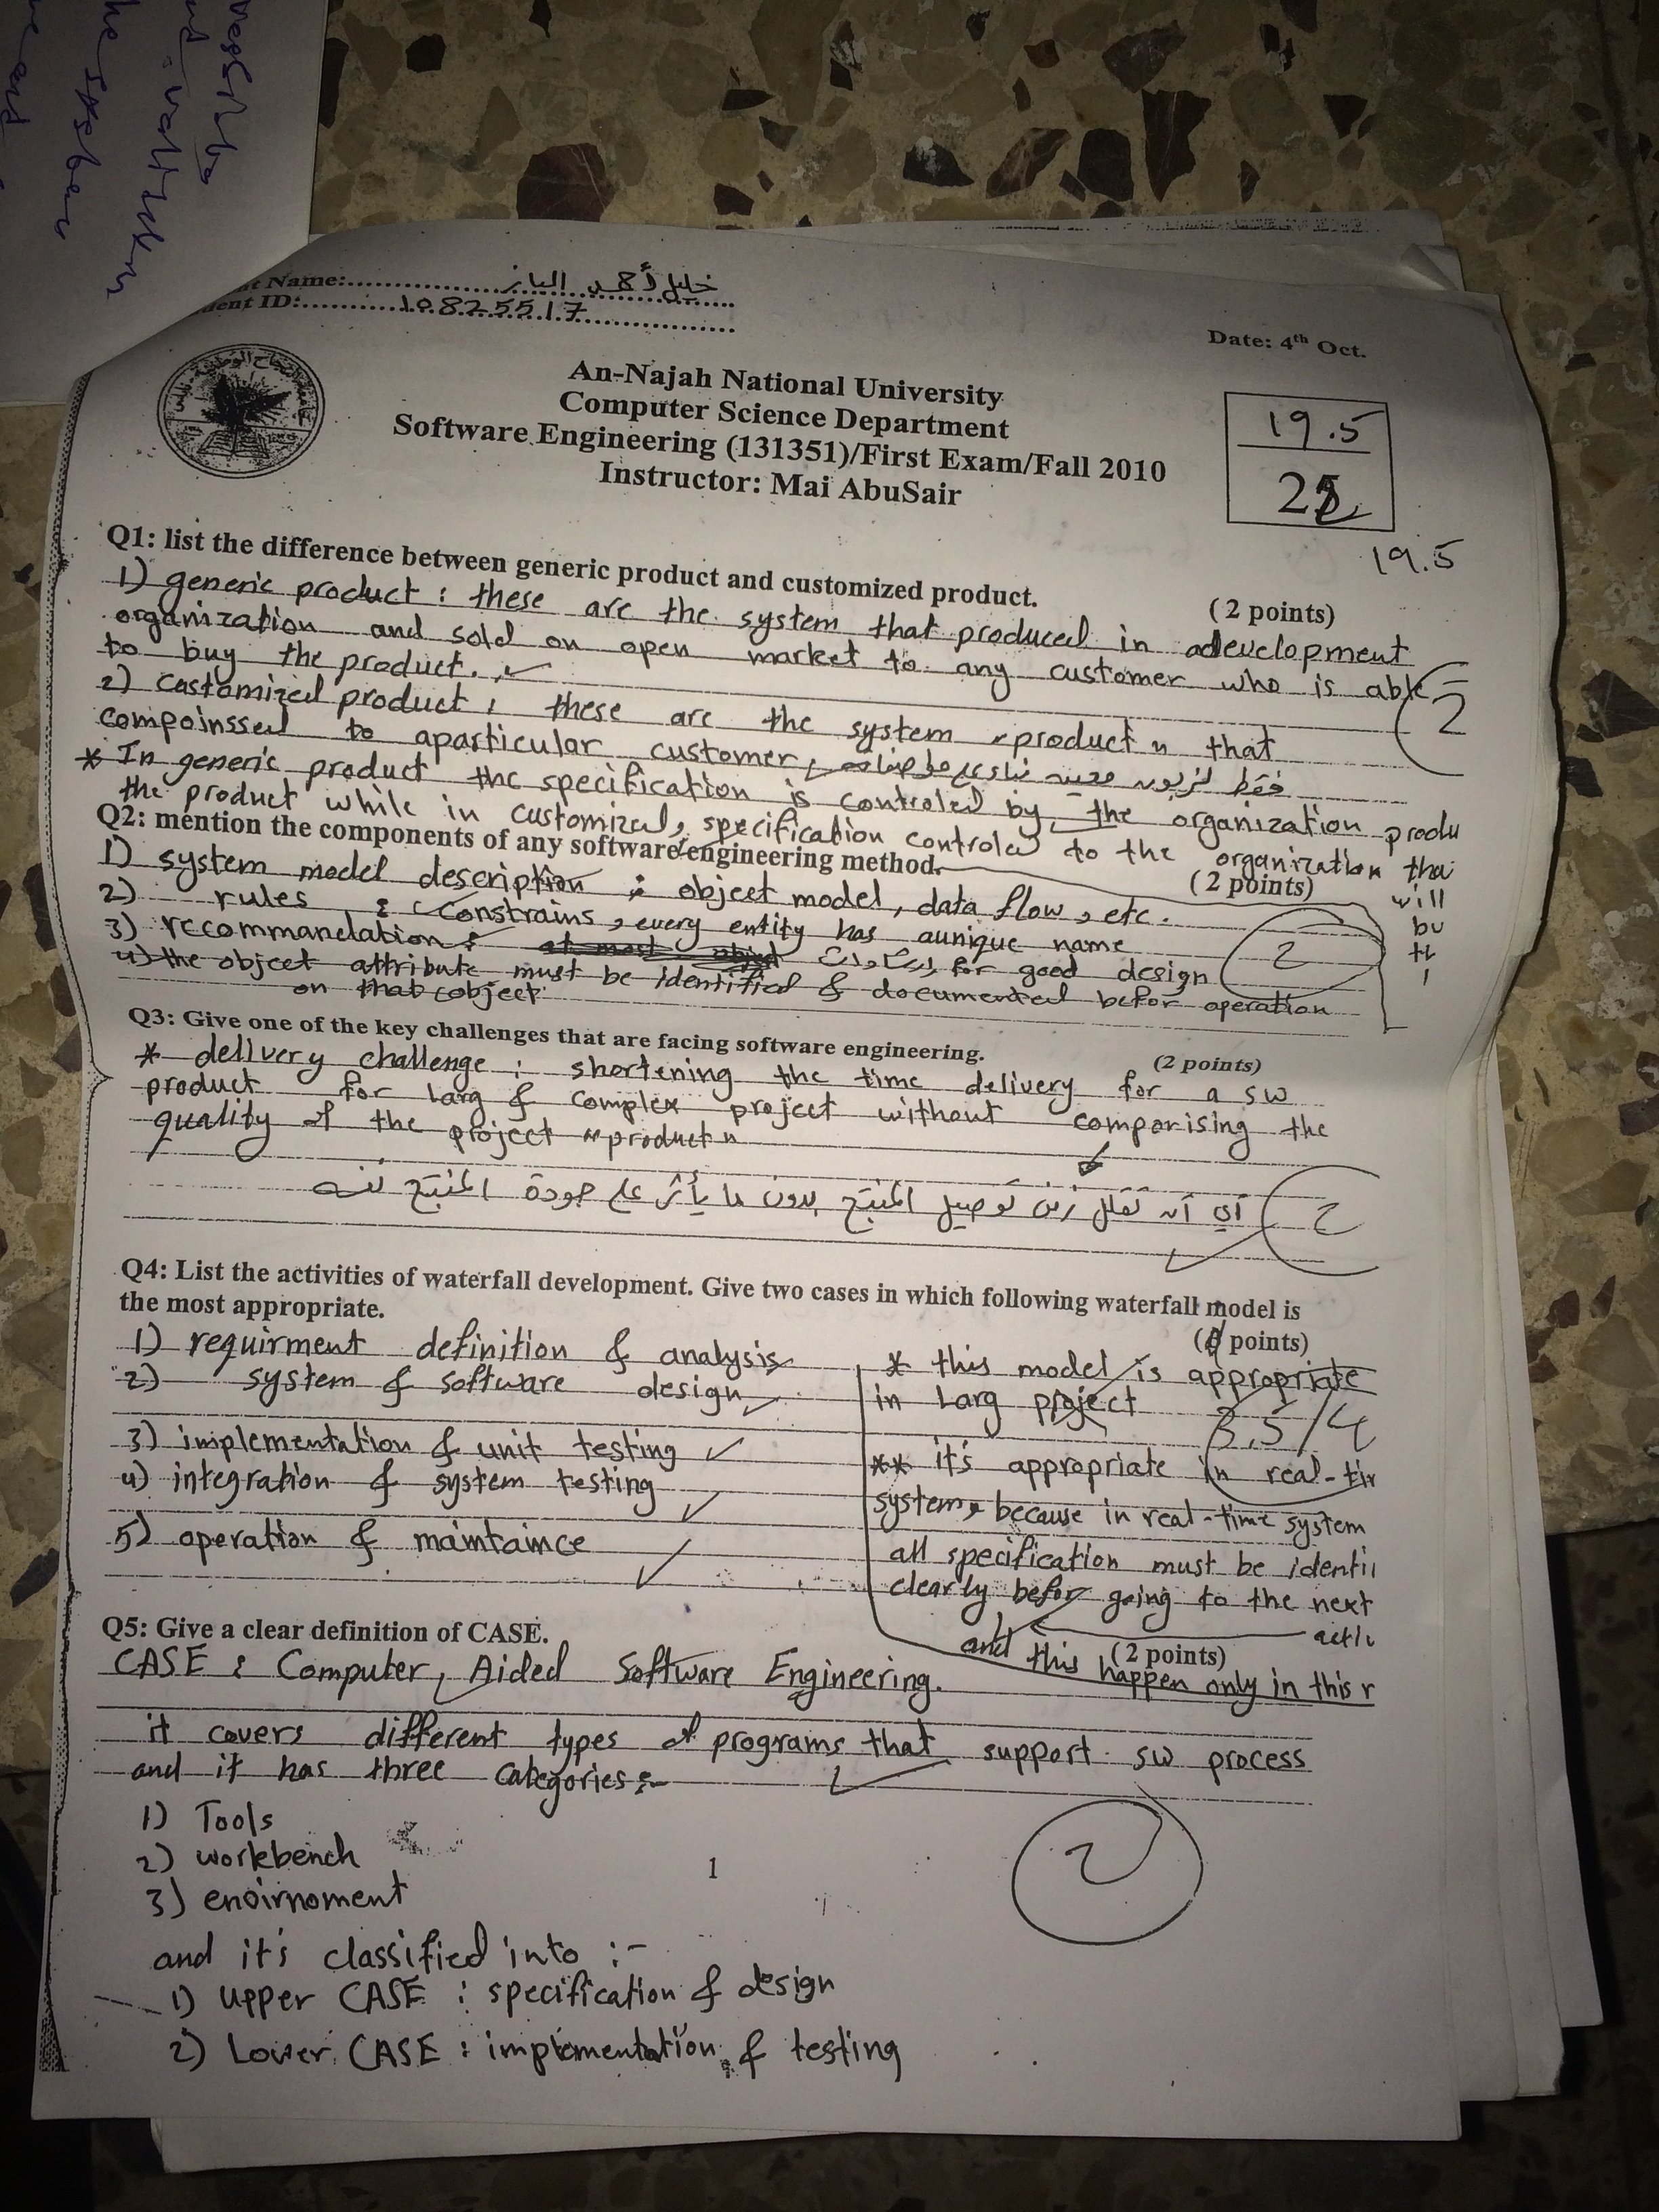 nt Name: خليل أحمد الباز
dent ID: 10825517
Date: 4th Oct.
An-Najah National University
Computer Science Department
Software Engineering (131351)/First Exam/Fall 2010
Instructor: Mai AbuSair
19.5
19.5
Q1: list the difference between generic product and customized product.
(2 points)
1) generic product : these are the system that produced in adevelopment
organization and sold on open market to any customer who is able
to buy the product.
2
2) castomized product , these are the system "product" that
compoinssed to aparticular customer,
* In generic product the specification is controled by the organization produ
the product while in customized, specification controled to the organization tha
will
bu
th
Q2: mention the components of any software engineering method.
(2 points)
1) system model description : object model, data flow, etc.
2) rules : constrains, every entity has aunique name
3) recommandation : for good design
2
4) the object attribute must be identified & documented befor operation
on that object
Q3: Give one of the key challenges that are facing software engineering.
(2 points)
* dellvery challenge : shortening the time delivery for a sw
product for larg & complex project without comparising the
quality of the project "product"
أي أن تقلل زمن توصيل المنتج بدون ما يأثر على جودة المنتج نفسه
2
Q4: List the activities of waterfall development. Give two cases in which following waterfall model is
the most appropriate.
points)
1) requirment definition & analysis
2) system & software design
3) implementation & unit testing
4) integration & system testing
5) operation & maintaince
* this model is appropriate
in Larg project
3.5/4
** it's appropriate in real-tim
system, because in real-time system
all specification must be identi
clearly befor going to the next
activ
and this happen only in this
Q5: Give a clear definition of CASE.
(2 points)
CASE : Computer Aided Software Engineering.
it covers different types of programs that support sw process
and it has three categories :-
1) Tools
2) workbench
3) envirnoment
2
1
and it's classified into :-
1) Upper CASE : specification & design
2) Lower CASE : implementation & testing